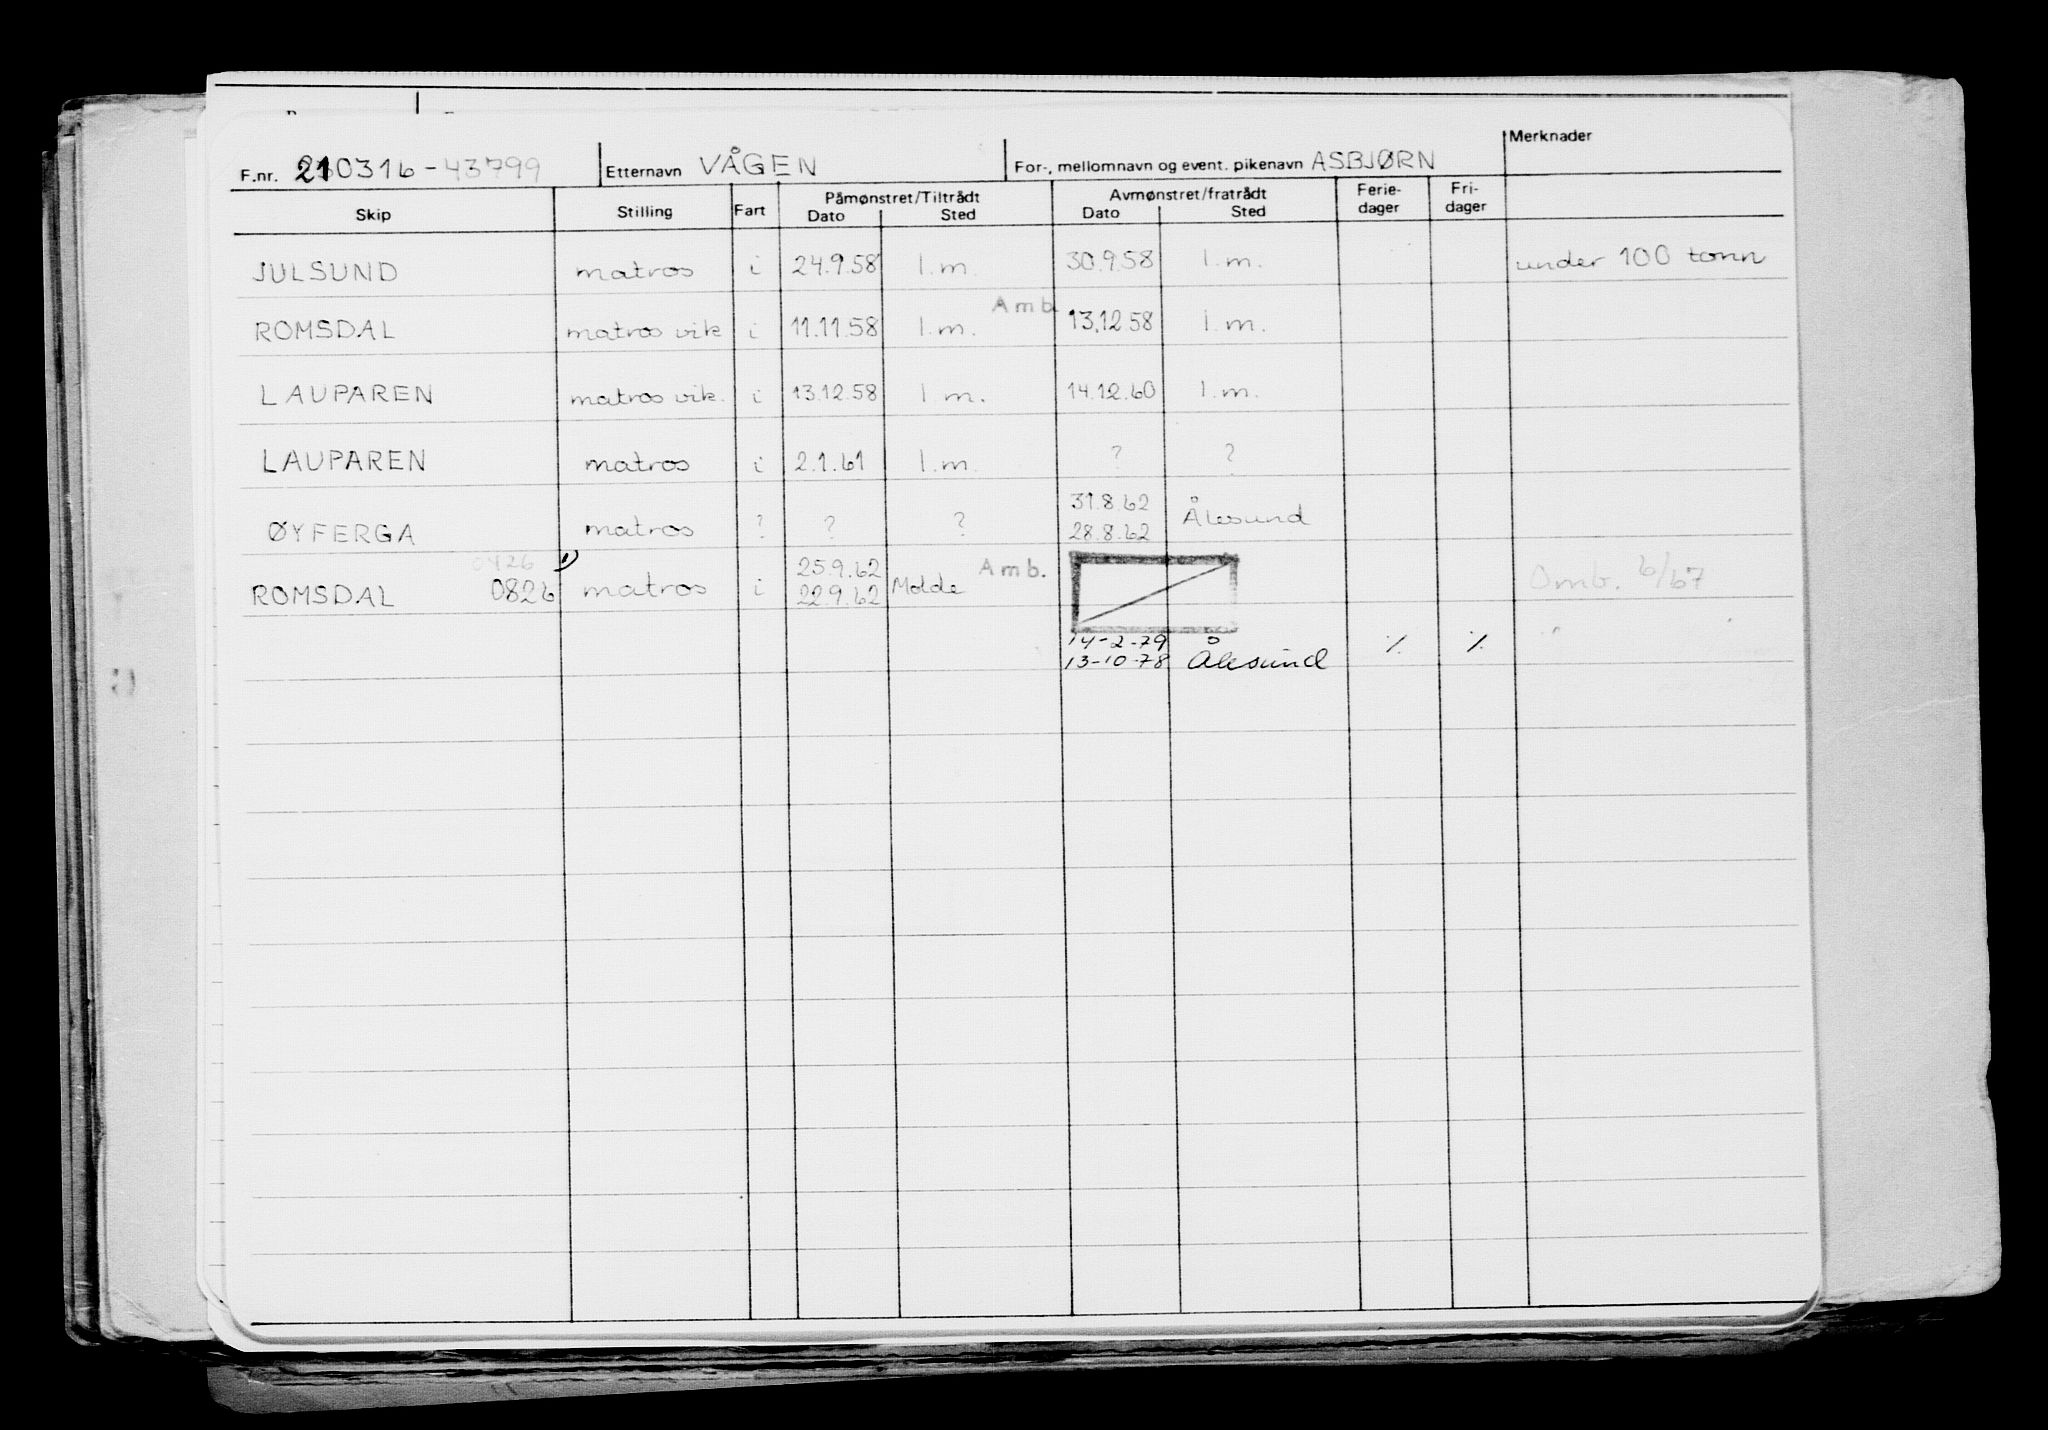 Merknader
F.nr. 210316-43799 Etternavn VÅGEN For-, mellomnavn og event. pikenavn ASBJØRN
Skip Stilling Fart Påmønstret/Tiltrådt Avmønstret/fratrådt Ferie-dager Fri-dager
Dato Sted Dato Sted
JULSUND matros i 24.9.58 l.m. 30.9.58 l.m. under 100 tonn
Amb
ROMSDAL matros vik i 11.11.58 l.m. 13.12.58 l.m.
LAUPAREN matros vik. i 13.12.58 l m. 14.12.60 l.m.
LAUPAREN matros i 2.1.61 l.m. ? ?
31.8.62
ØYFERGA matros ? ? ? 28.8.62 Ålesund
0426 1) 25.9.62 Amb.
ROMSDAL 0826 matros i 22.9.62 Molde Omb. 6/67
14-2-79
13-10-78 Ålesund ٪ ٪